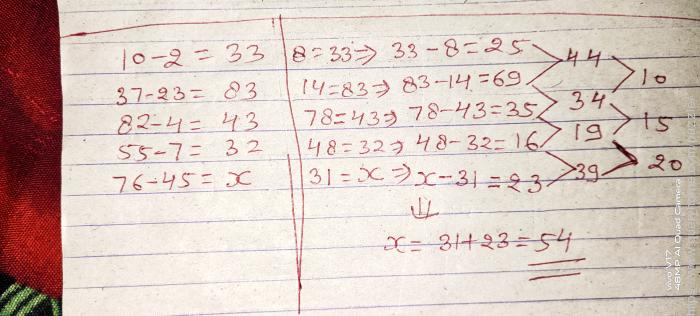 10-2 = 33
37-23 = 83
82-4 = 43
55-7 = 32
76-45 = x
8=33⇒ 33-8=25
14=83⇒ 83-14=69
78=43⇒ 78-43=35
48=32⇒ 48-32=16
31=x⇒ x-31=23
44
34
19
39
10
15
20
⇓
x= 31+23=54
vivo V17
48MP AI Quad Camera